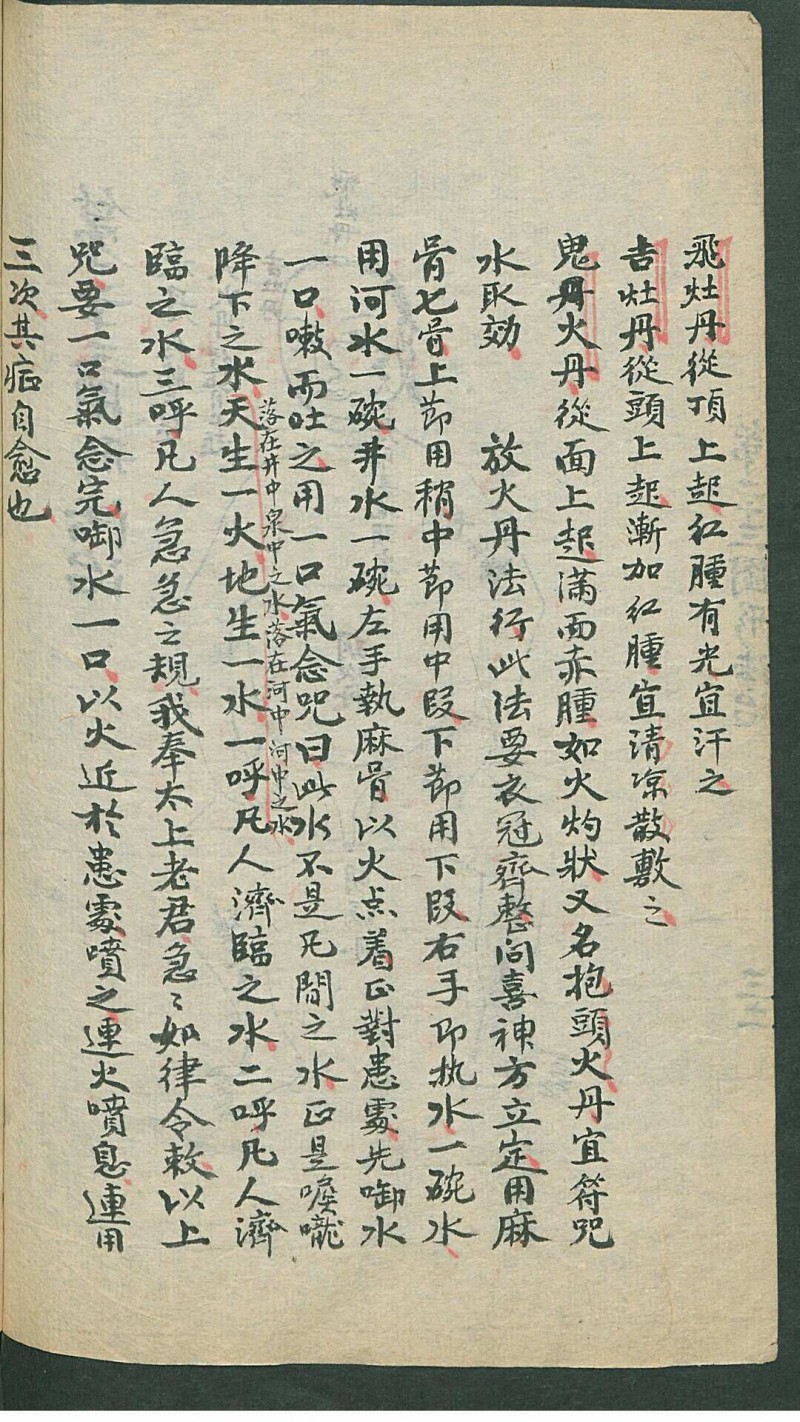 飛灶丹從頂上起紅腫有光宜汗之
吉灶丹從頭上起漸加紅腫宜清凉散敷之
鬼丹火丹從面上起滿面赤腫如火灼狀又名抱頭火丹宜符咒
水取効　放火丹法行此法要衣冠齊整向喜神方立定用麻
骨七骨上節用稍中節用中段下節用下段右手叩执水一碗水
用河水一碗井水一碗左手執麻骨以火点着正對患處先啣水
一口嗽而吐之用一口氣念咒曰此水不是凡間之水正是喉嚨
落在井中泉中之水落在河中河中之水
降下之水天生一火地生一水一呼凡人濟臨之水二呼凡人濟
臨之水三呼凡人急急之規我奉太上老君急〻如律令敕以上
咒要一口氣念完啣水一口以火近於患處噴之連火噴息連用
三次其症自愈也